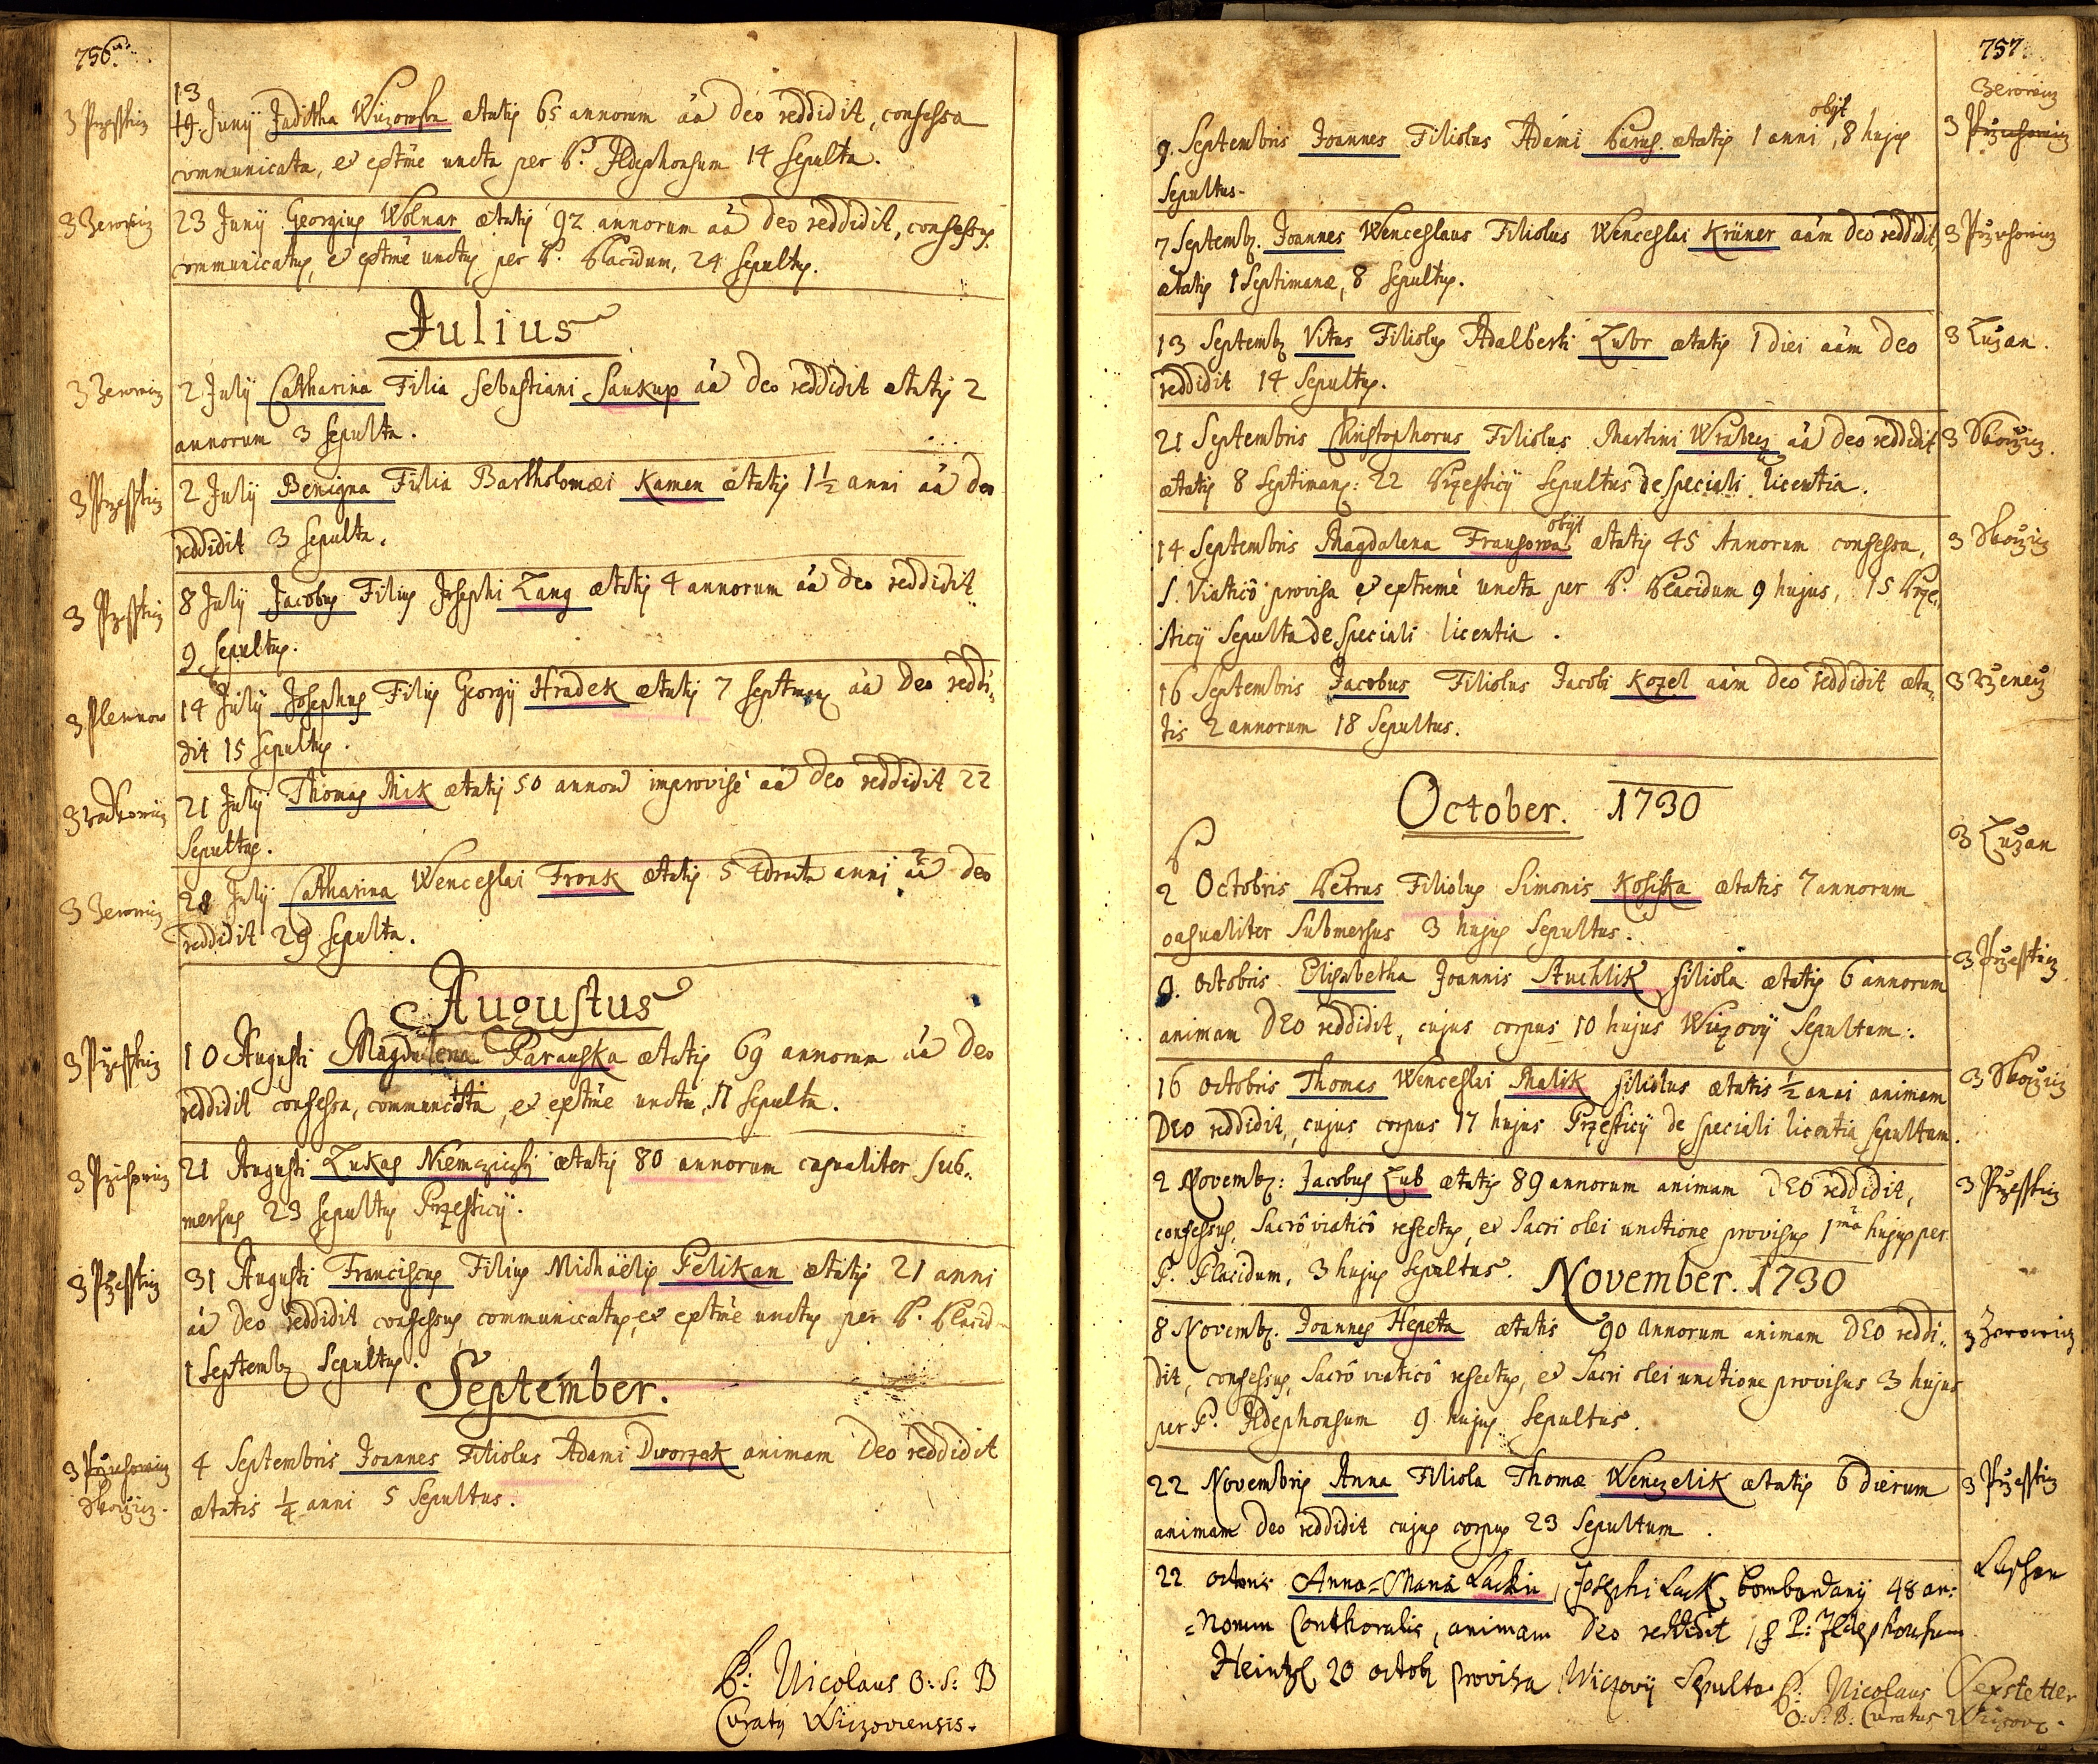 756
13
3 Przesstiz
19. Junij Juditha Wiczowska ætatis 65 annorum aã Deo reddidit, confessa
communicata, et extme uncta per P. Ildephonsum 14 Sepulta.
3 Zerowiz
23 Junij Georgius Wolnar ætatis 92 annorum aã Deo reddidit, confessus
communicatus, et extme unctus per P. Placidum, 24 Sepultus.
Julius
3 Zerowiz
2 July Catharina Filia Sebastiani Saukup aã Deo reddidit ætatis 2
annorum 3 Sepulta.
3 Przesstiz
2 July Benigna Filia Bartholomæi Kamen ætatis 1½ anni aã Deo
reddidit 3 Sepulta.
3 Przesstiz
8 July Jacobus Filius Josephi Lang ætatis 4 annorum aã Deo reddidit
9 Sepultus.
3 Plewnow
14 July Josephus Filius Georgij Hradek ætatis 7 Septman aã Deo reddi„
dit 15 Sepultus.
21 July Thomas Mik ætatis 50 annorũ improvisè aã Deo reddidit 22
Sepultus.
3 Zerowiz
28 July Catharina Wenceslai Fronk ætatis anni aã Deo
reddidit 29 Sepulta.
Augustus
3 Przesstiz
10 Augusti Magdalena Parauska ætatis 69 annorum aã Deo
reddidit confessa, communicata, et extme uncta, 11 Sepulta.
3 Przichowiz
21 Augusti Lukas Niemcziczki ætatis 80 annorum casualiter sub„
mersus 23 Sepultus Przesticij.
3 Przesstiz
31 Augusti Franciscus Filius Michaëlis Pelikan ætatis 21 anni
aã Deo reddidit confessus communicatus, et extme unctus per P. Placid
1 Septemb Sepultus.
September.
3 Przichowiz
Skoczicz.
4 Septembris Joannes Filiolus Adami Dworzak animam Deo reddidit
ætatis ¼ anni 5 Sepultus.
P: Nicolaus O: S: B
Curatus Wiczoviensis.
757
Zerowiz
3 Przichowiz
obijt
9. Septembris Joannes Filiolus Adami Parus ætatis 1 anni, 8 hujus
Sepultus.
3 Przichowiz
7 Septemb. Joannes Wenceslaus Filiolus Wenceslai Krüner aãm Deo reddidit,
ætatis 1 Septimanæ, 8 Sepultus.
3 Luzan.
13 Septemb Vitus Filiolus Adalberti Lubr ætatis 1 diei aãm Deo
reddidit 14 Sepultus.
3 Skoczicz.
21 Septembris Christophorus Filiolus Martini Wrabecz aã Deo reddidit
ætatis 8 Septiman: 22 Przesticij Sepultus de Speciali licentia.
3 Skoczicz
obijt
14 Septembris Magdalena Fransowa ætatis 45 Annorum confessa,
S. Viaticô provisa et extremè uncta per P. Placidum 9 hujus, 15 Prze„
sticij Sepulta de Speciali licentia.
16 Septembris Jacobus Filiolus Jacobi Kozel aãm Deo reddidit æta„
tis 2 annorum 18 Sepultus.
October. 1730
3 Luzan
2 Octobris Petrus Filiolus Simonis Kosiska ætatis 7 annorum
casualiter Submersus 3 hujus Sepultus.
3 Przesticz
9. Octobris Elisabetha Joannis Stuchlik filiola ætatis 6 annorum
animam DEO reddidit, cujus corpus 10 hujus Wiczovij Sepultum.
3 Skoczicz
16 Octobris Thomas Wenceslai Malik filiolus ætatis ½ anni animam
DEO reddidit, cujus corpus 17 hujus Przesticij de speciali licentia sepultum.
3 Przesstiz
2 Novemb: Jacobus Lub ætatis 89 annorum animam DEO reddidit,
confessus, Sacrô viaticô refectus, et Sacri olei unctione provisus 1mã hujus per
P. Placidum, 3 hujus Sepultus.
November. 1730
3 Zerowicz
8 Novemb. Joannes Hepeta ætatis 90 Annorum animam DEO reddi„
dit, confessus, Sacrô viaticô refectus, et Sacri olei unctione provisus 3 hujus
per P. Ildephonsum 9 hujus Sepultus.
3 Przesstiz
22 Novembris Anna Filiola Thomæ Wenczelik ætatis 6 dierum
animam Deo reddidit cujus corpus 23 Sepultum.
22 octobris Anna=Maria Lackin, Josephi Lack Bombardarij 48 an:
=norum Conthoralis, animam Deo reddidit P: Ildephonsum
Heintzl 20 octob provisa Wiczovij Sepulta.
P: Nicolaus Sexstetter
O: S: B: Curatus Wiczov.